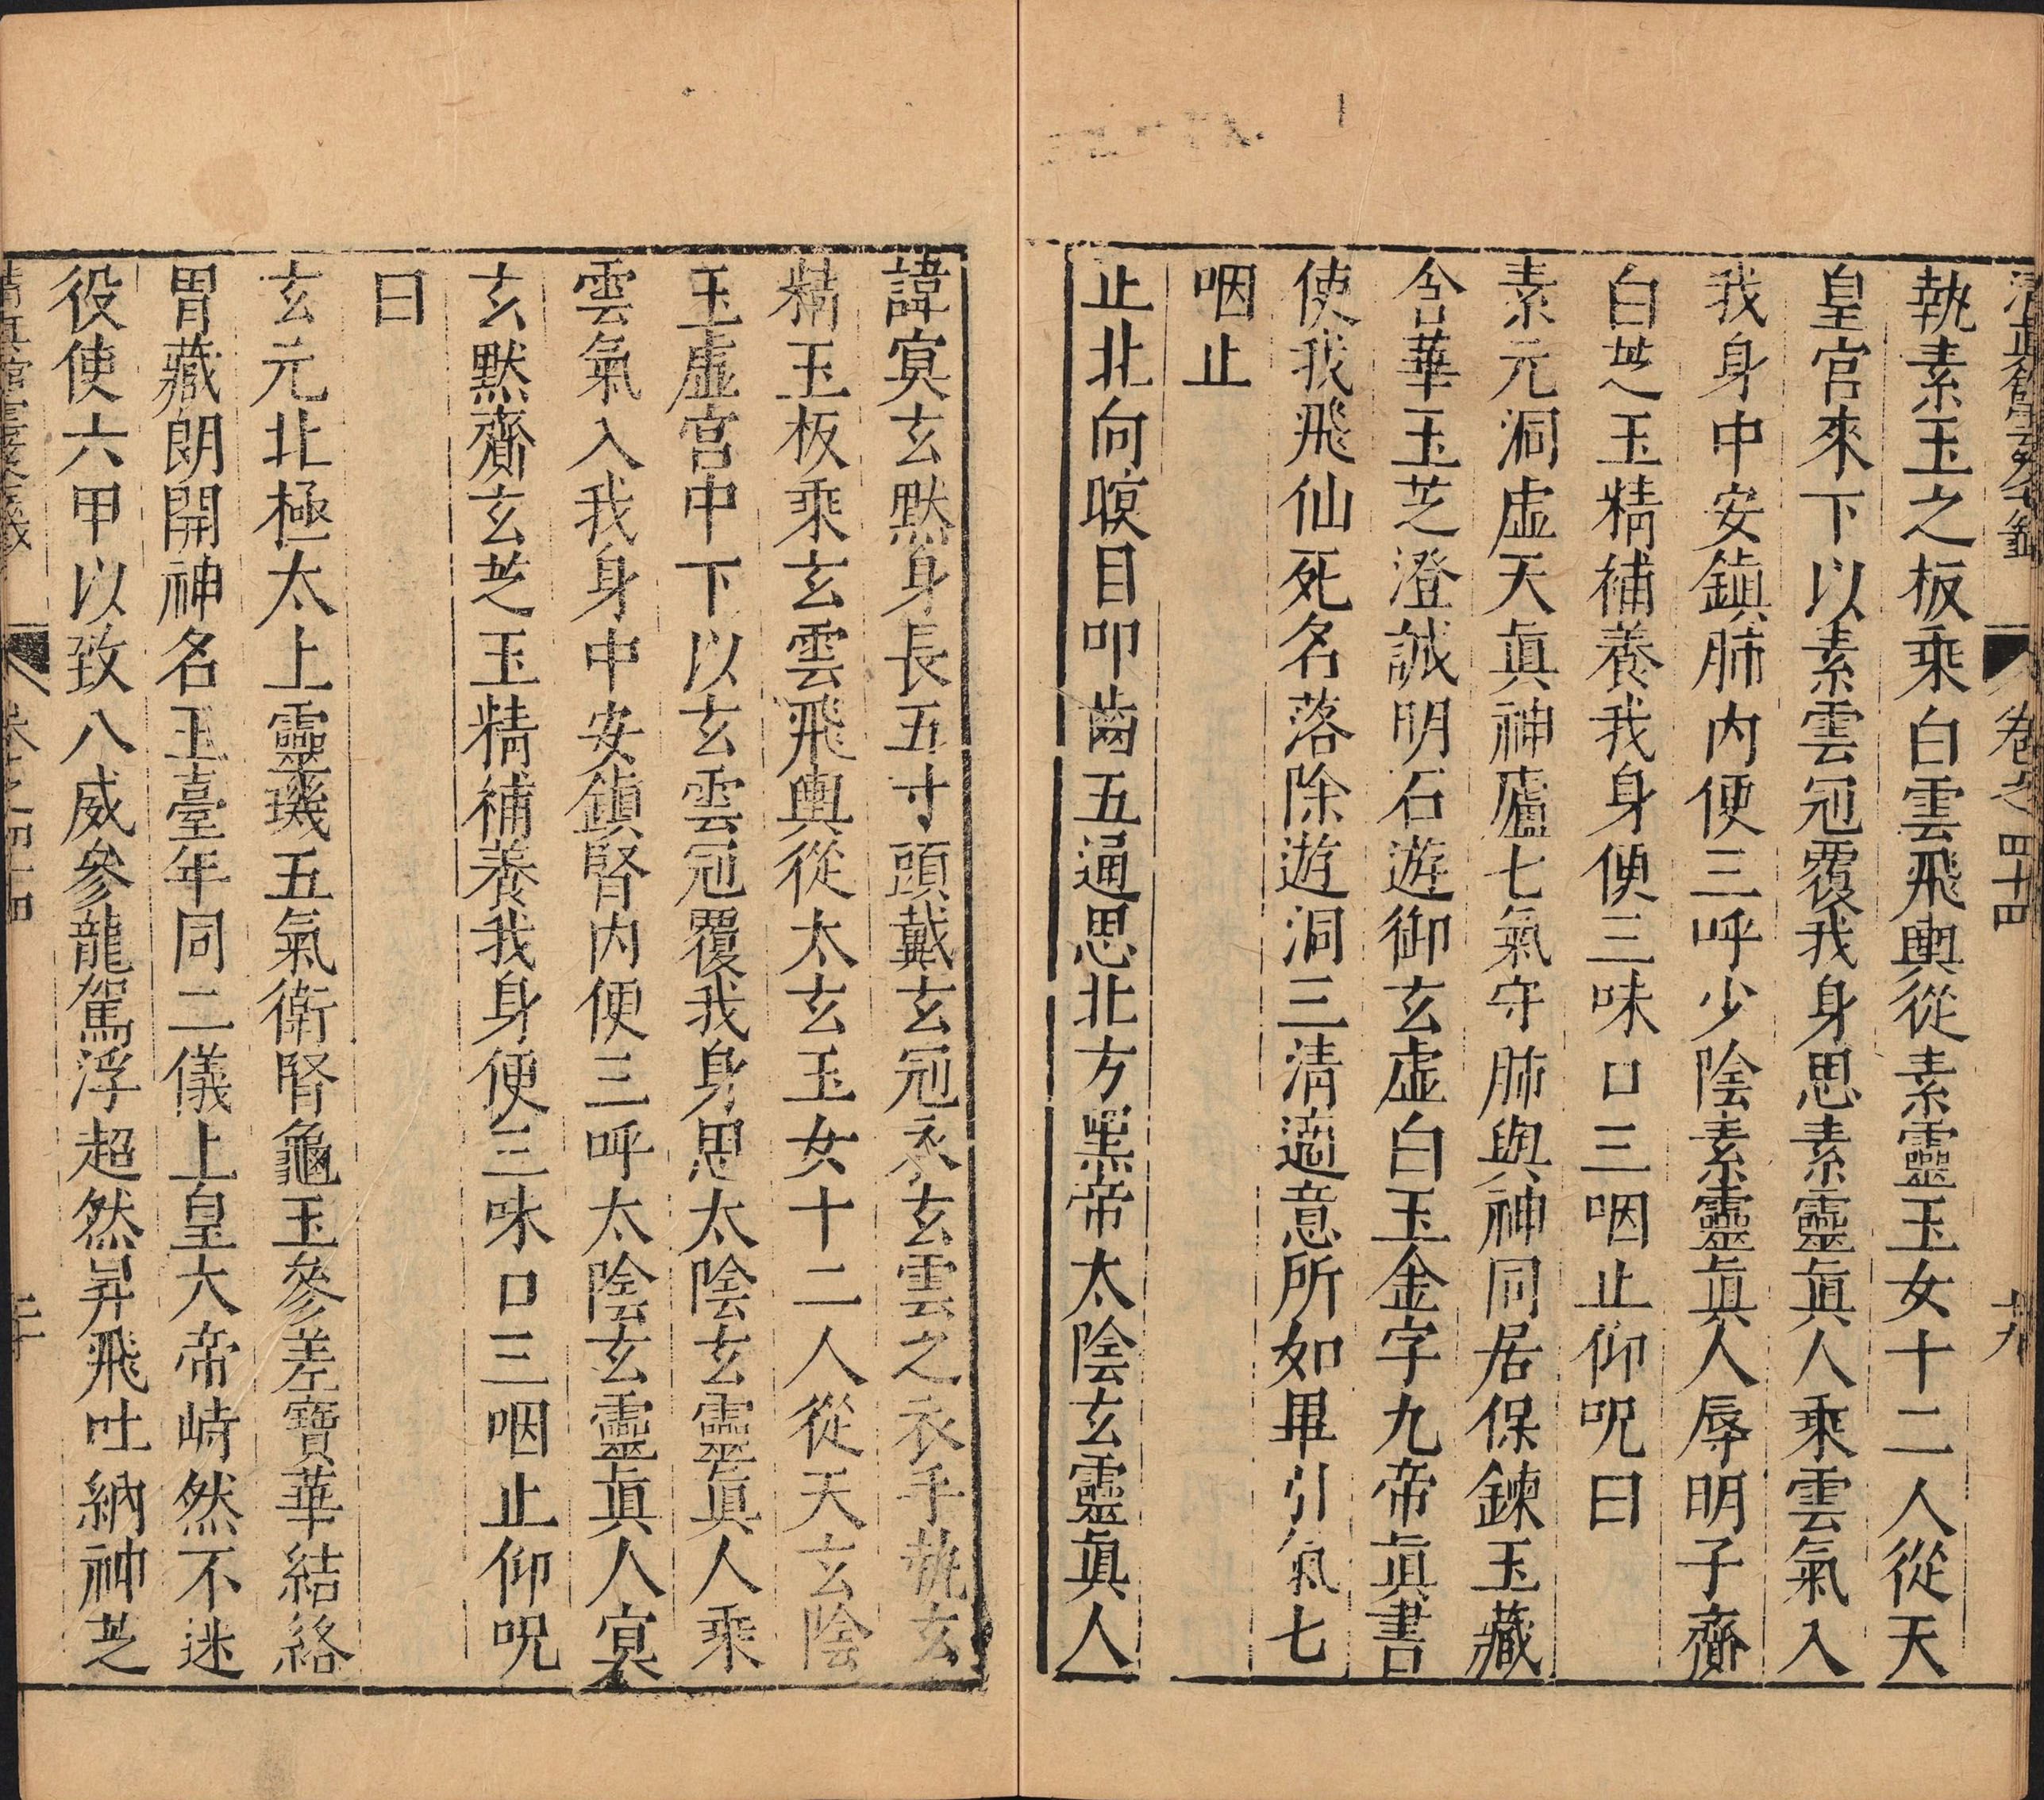 清真館雲笈七籤 卷之四十四 十九
執素玉之板乘白雲飛輿從素靈玉女十二人從天
皇宮來下以素雲冠覆我身思素靈眞人乘雲氣入
我身中安鎮肺内便三呼少陰素靈眞人辱明子齎
白芝玉精補養我身便三味口三咽止仰呪曰
素元洞虛天眞神廬七氣守肺與神同居保鍊玉藏
含華玉芝澄誠明石遊御玄虛白玉金字九帝眞書
使我飛仙死名落除遊洞三清適意所如畢引氣七
咽止
止北向瞑目叩齒五通思北方黑帝太陰玄靈眞人
諱寘玄默身長五寸頭戴玄冠衣玄雲之衣手執玄
精玉板乘玄雲飛輿從太玄玉女十二人從天玄陰
玉虛宮中下以玄雲冠覆我身思太陰玄靈眞人乘
雲氣入我身中安鎮腎内便三呼太陰玄靈眞人寘
玄默齎玄芝玉精補養我身便三味口三咽止仰呪
曰
玄元北極太上靈璣五氣衛腎龜玉參差寶華結絡
胃藏朗開神名玉臺年同二儀上皇大帝峙然不迷
役使六甲以致八威參龍駕浮超然昇飛吐納神芝
卷之四十四 二十